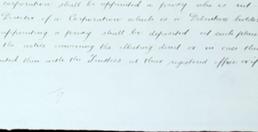 corporation shall be appointed a proxy who is not
Director of a Corporation which is a Debenture holder
appointing a proxy shall be deposited at such place
the notice convening the Meeting direct or in case there
then with the Trustees at their registered office or if